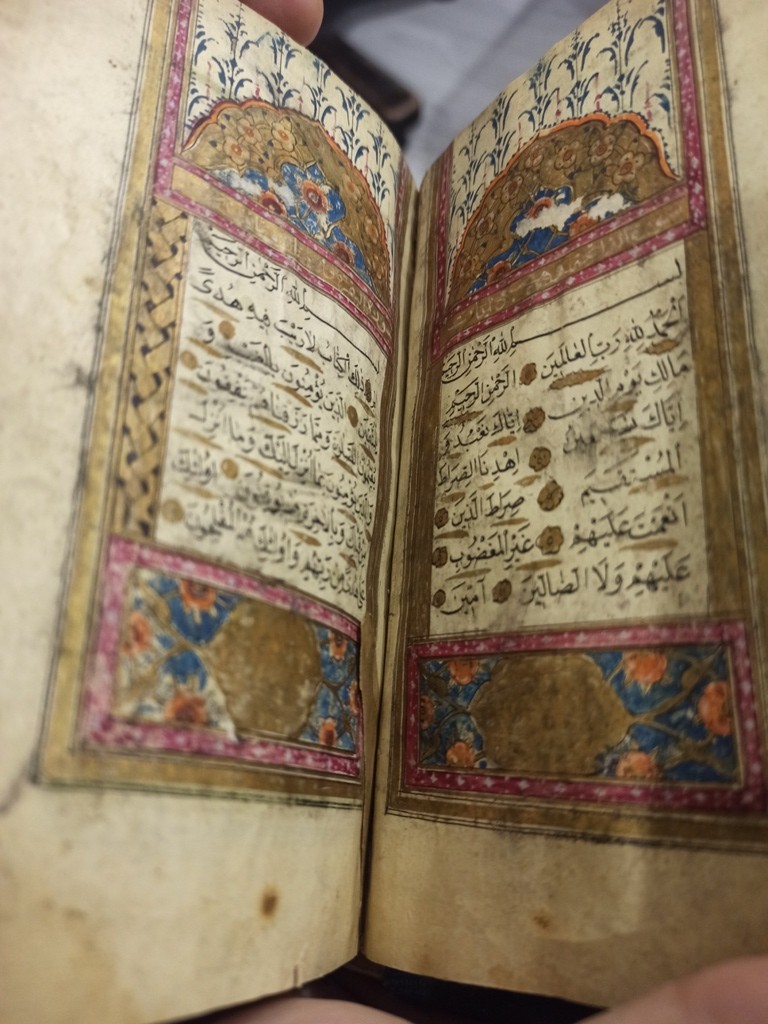 بِسْمِ اللهِ الرَّحْمٰنِ الرَّحِيمِ
اَلْحَمْدُ لِلّٰهِ رَبِّ الْعَالَمِينَ الرَّحْمٰنِ الرَّحِيمِ
مَالِكِ يَوْمِ الدِّينِ اِيَّاكَ نَعْبُدُ وَ
اِيَّاكَ نَسْتَعِينُ اِهْدِنَا الصِّرَاطَ
الْمُسْتَقِيمَ صِرَاطَ الَّذِينَ
اَنْعَمْتَ عَلَيْهِمْ غَيْرِ الْمَغْضُوبِ
عَلَيْهِمْ وَلَا الضَّالِّينَ اٰمِينَ
بِسْمِ اللهِ الرَّحْمٰنِ الرَّحِيمِ
ذٰلِكَ الْكِتَابُ لَا رَيْبَ فِيهِ هُدًى
لِلْمُتَّقِينَ الَّذِينَ يُؤْمِنُونَ بِالْغَيْبِ وَ
يُقِيمُونَ الصَّلٰوةَ وَمِمَّا رَزَقْنَاهُمْ يُنْفِقُونَ
وَالَّذِينَ يُؤْمِنُونَ بِمَا اُنْزِلَ اِلَيْكَ وَمَا اُنْزِلَ
قَبْلِكَ وَبِالْاٰخِرَةِ هُمْ يُوقِنُونَ اُولٰئِكَ
هُدًى مِنْ رَبِّهِمْ وَاُولٰئِكَ هُمُ الْمُفْلِحُونَ